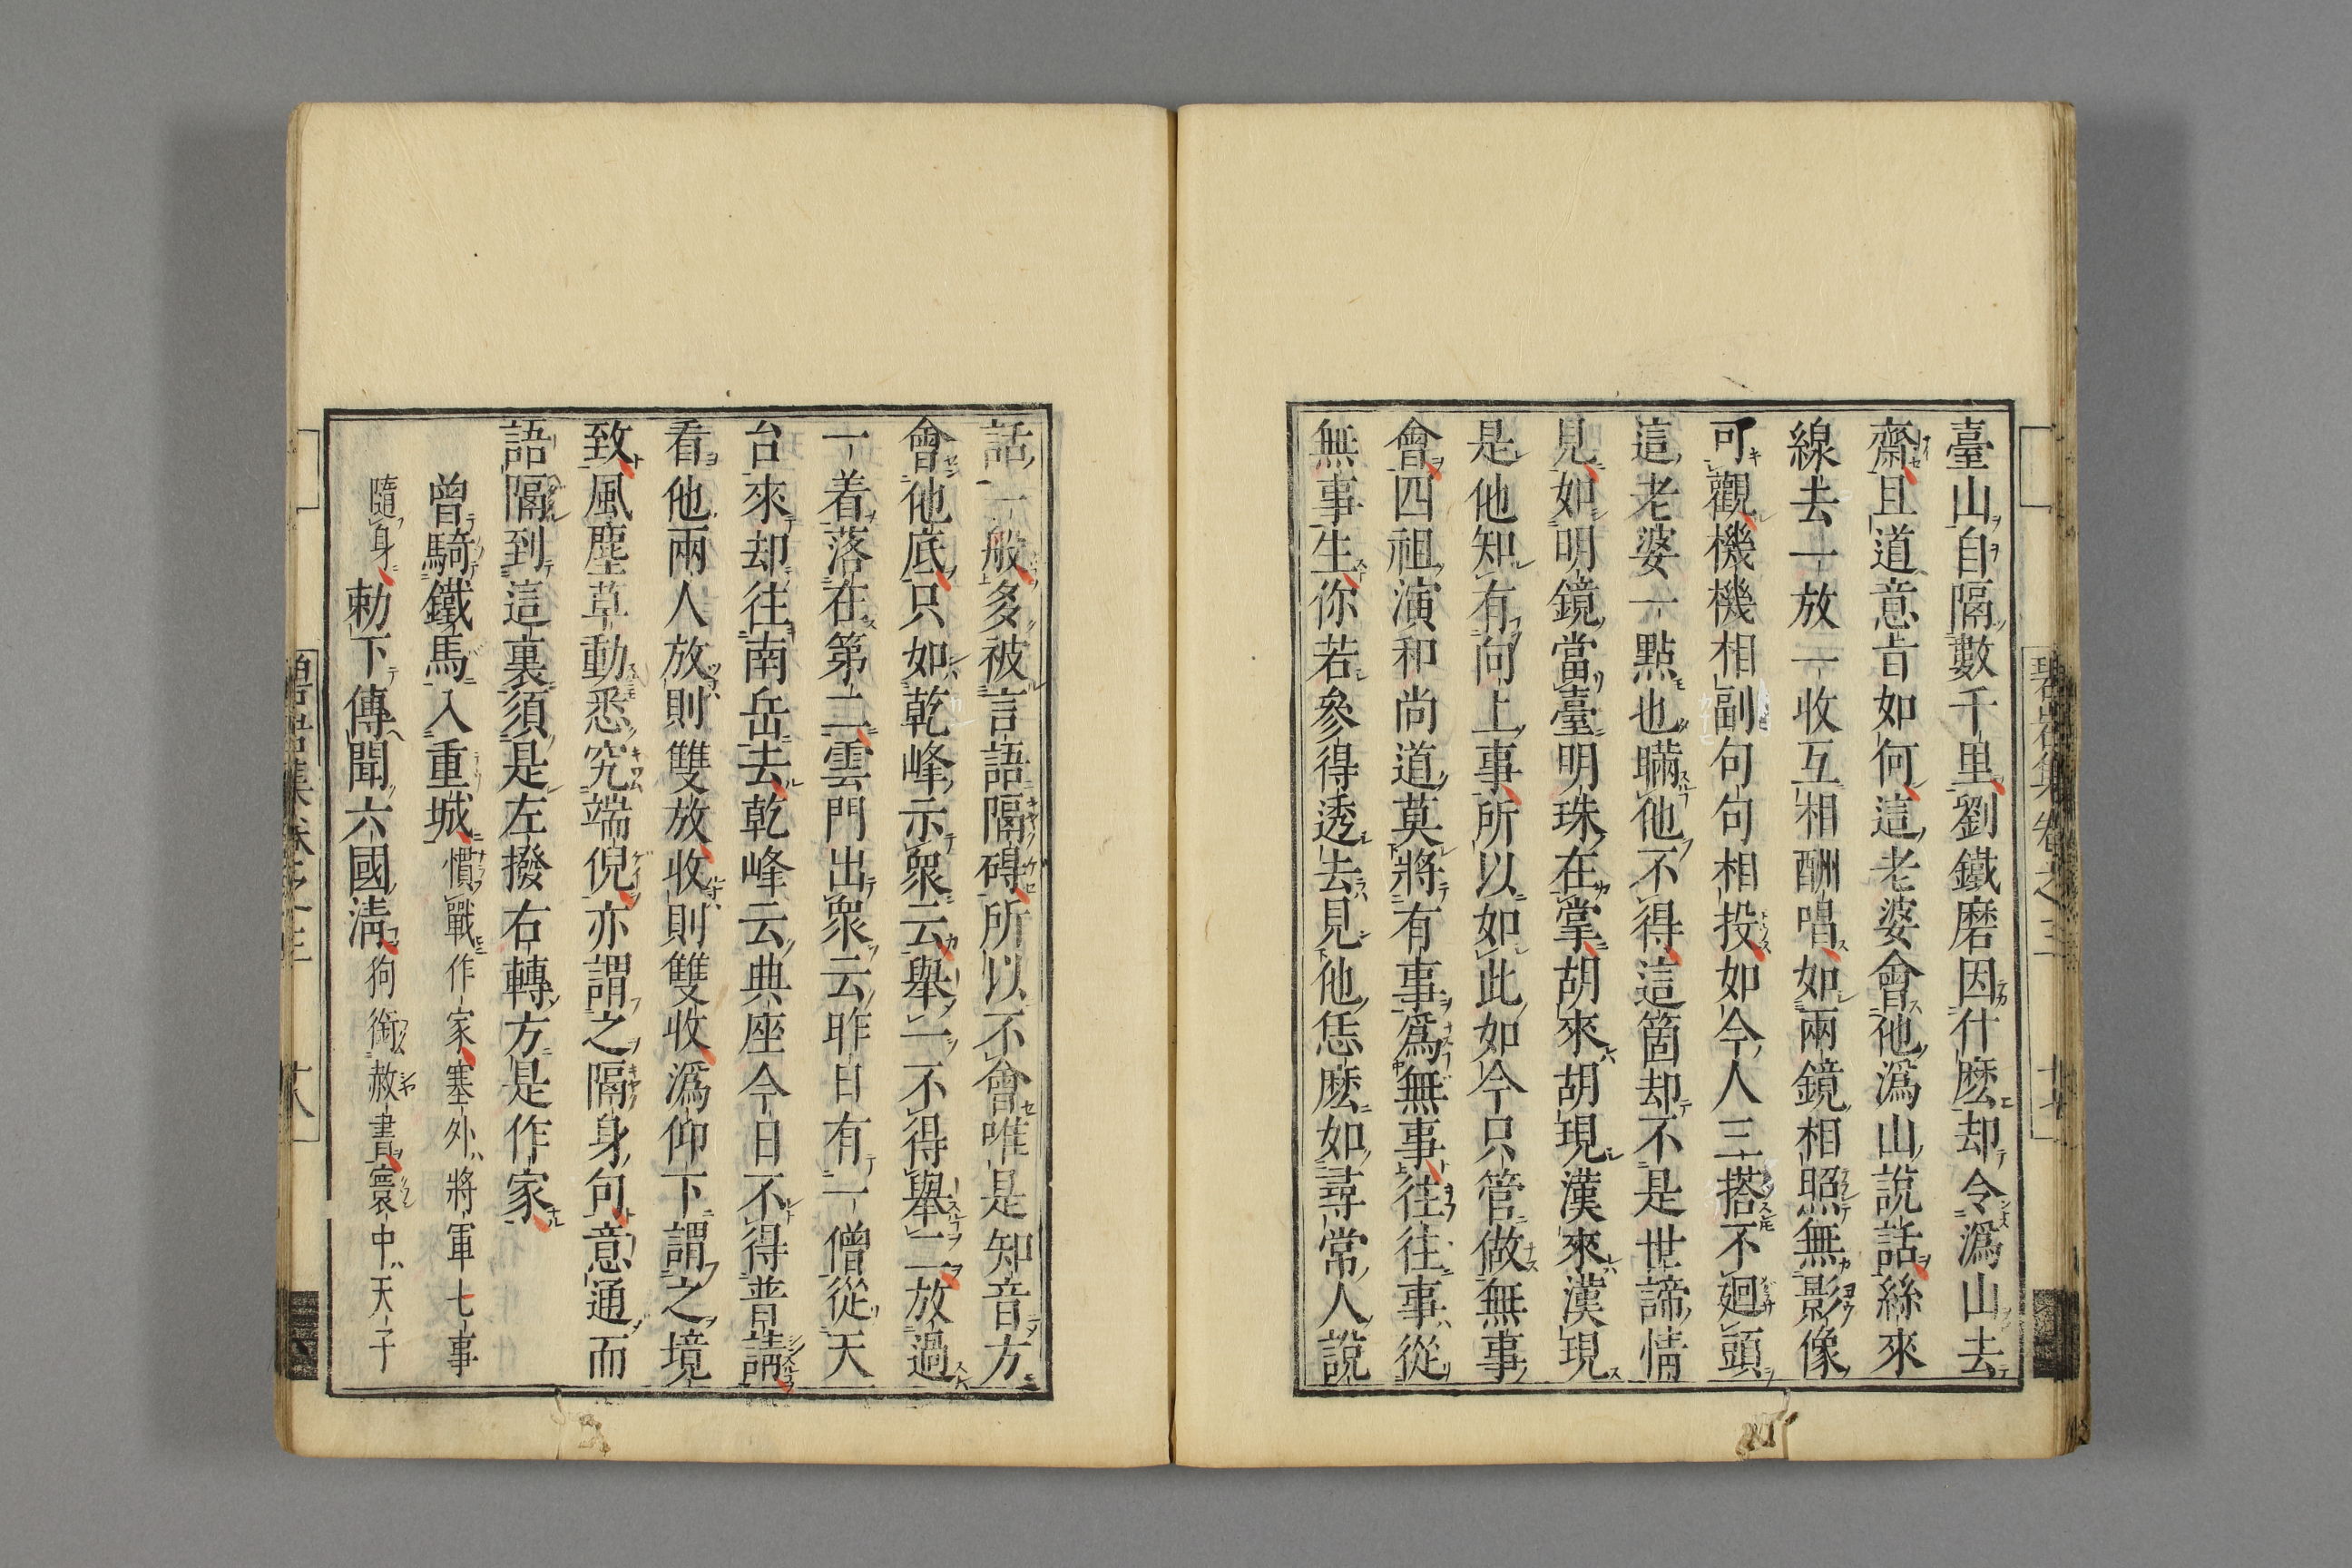 臺山自隔數千里劉鐵磨因什麽却令潙山去
齋且道意旨如何這老婆會他潙山說話絲來
線去一放一收互相酬唱如兩鏡相照無影像
可觀機機相副句句相投如今人三搭不廻頭
這老婆一點也瞞他不得這箇却不是世諦情
見如明鏡當臺明珠在掌胡來胡現漢來漢現
是他知有向上事所以如此如今只管做無事
會四祖演和尚道莫將有事爲無事往往事從
無事生你若參得透去見他恁麽如尋常人說
話一般多被言語隔碍所以不會唯是知音方
會他底只如乾峰示衆云舉一不得舉二放過
一着落在第二雲門出衆云昨日有一僧從天
台來却往南岳去乾峰云典座今日不得普請
看他兩人放則雙放收則雙收潙仰下謂之境
致風塵草動悉究端倪亦謂之隔身句意通而
語隔到這裏須是左撥右轉方是作家
曾騎鐵馬入重城慣戰作家塞外將軍七事
隨身勅下傳聞六國淸狗銜赦書寰中天子